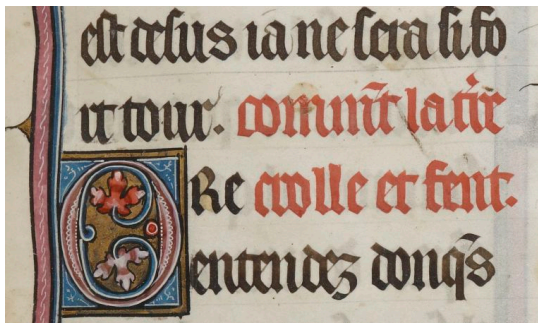 est desus ia ne sera si fo
rt tour. comm̃t la t̃re
ORe crolle et fent.
entendez donq̃s